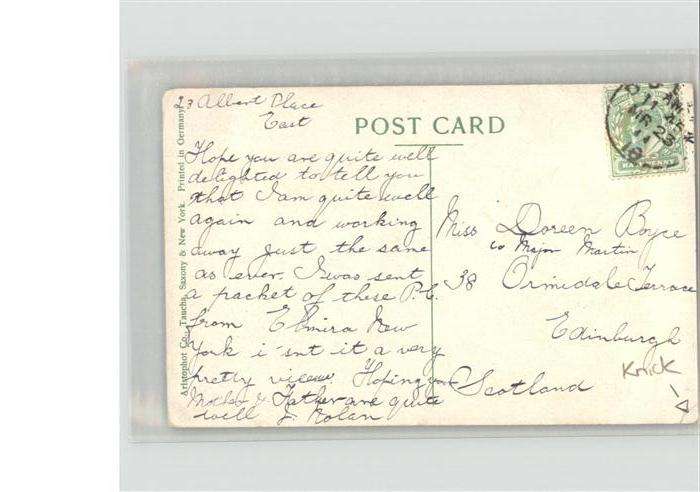 23 Albert Place
East
POST CARD
Hope you are quite well
delighted to tell you
that I am quite well
again and working
away just the same
as ever. I was sent
a packet of these P.C.
from Elmira New
York i'snt it a very
pretty view Hoping your
Mother & Father are quite
well J. Nolan
Miss Doreen Boyce
c/o Major Martin
38 Ormidale Terrace
Edinburgh
Scotland
Knick
Aristophot Co., Taucha, Saxony & New York. Printed in Germany.
11
23